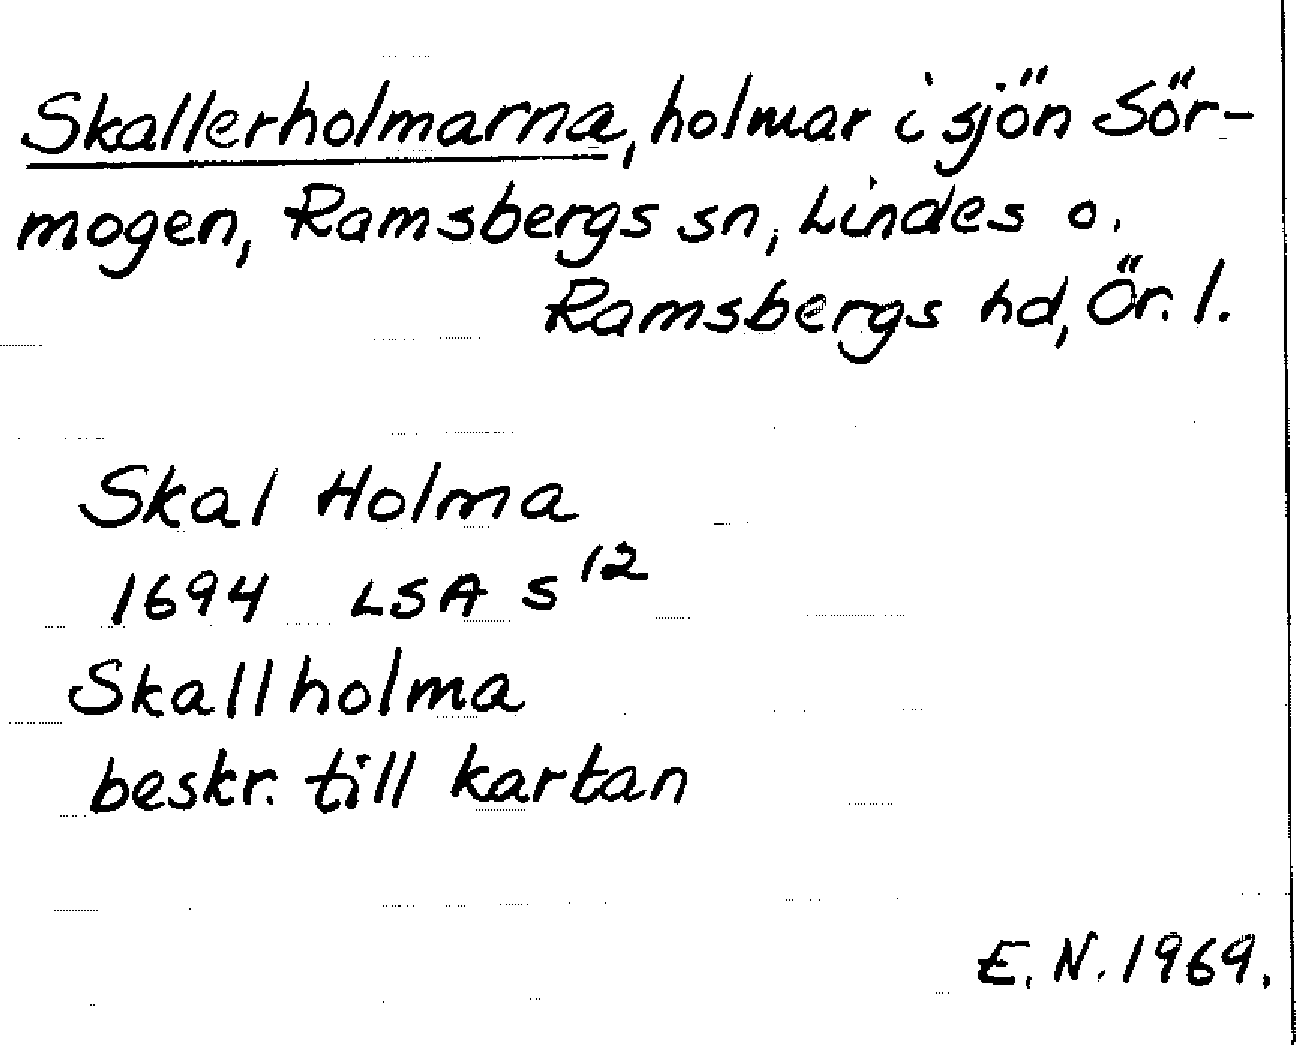 Skallerholmarna, holmar i sjön Sör-
mogen, Ramsbergs sn, Lindes o.
Ramsbergs hd, Ör. l.
Skal Holma
1694 LSA S 12
Skallholma
beskr. till kartan
E. N. 1969.